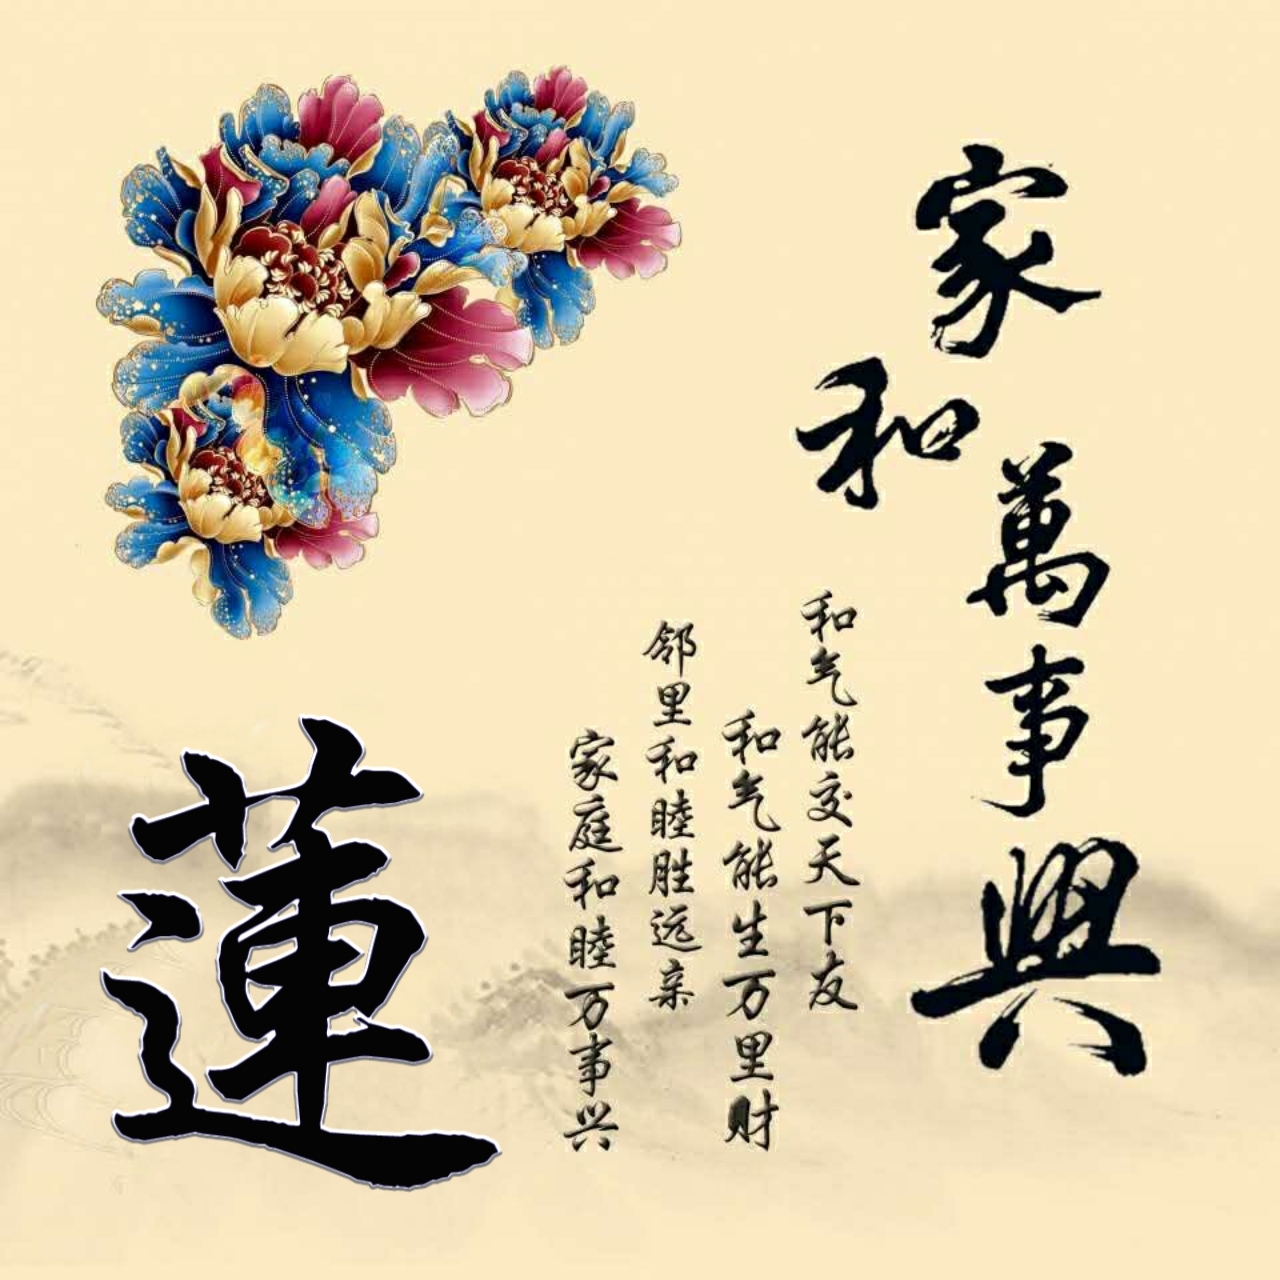 家和萬事興
和气能交天下友
和气能生万里财
邻里和睦胜远亲
家庭和睦万事兴
蓮